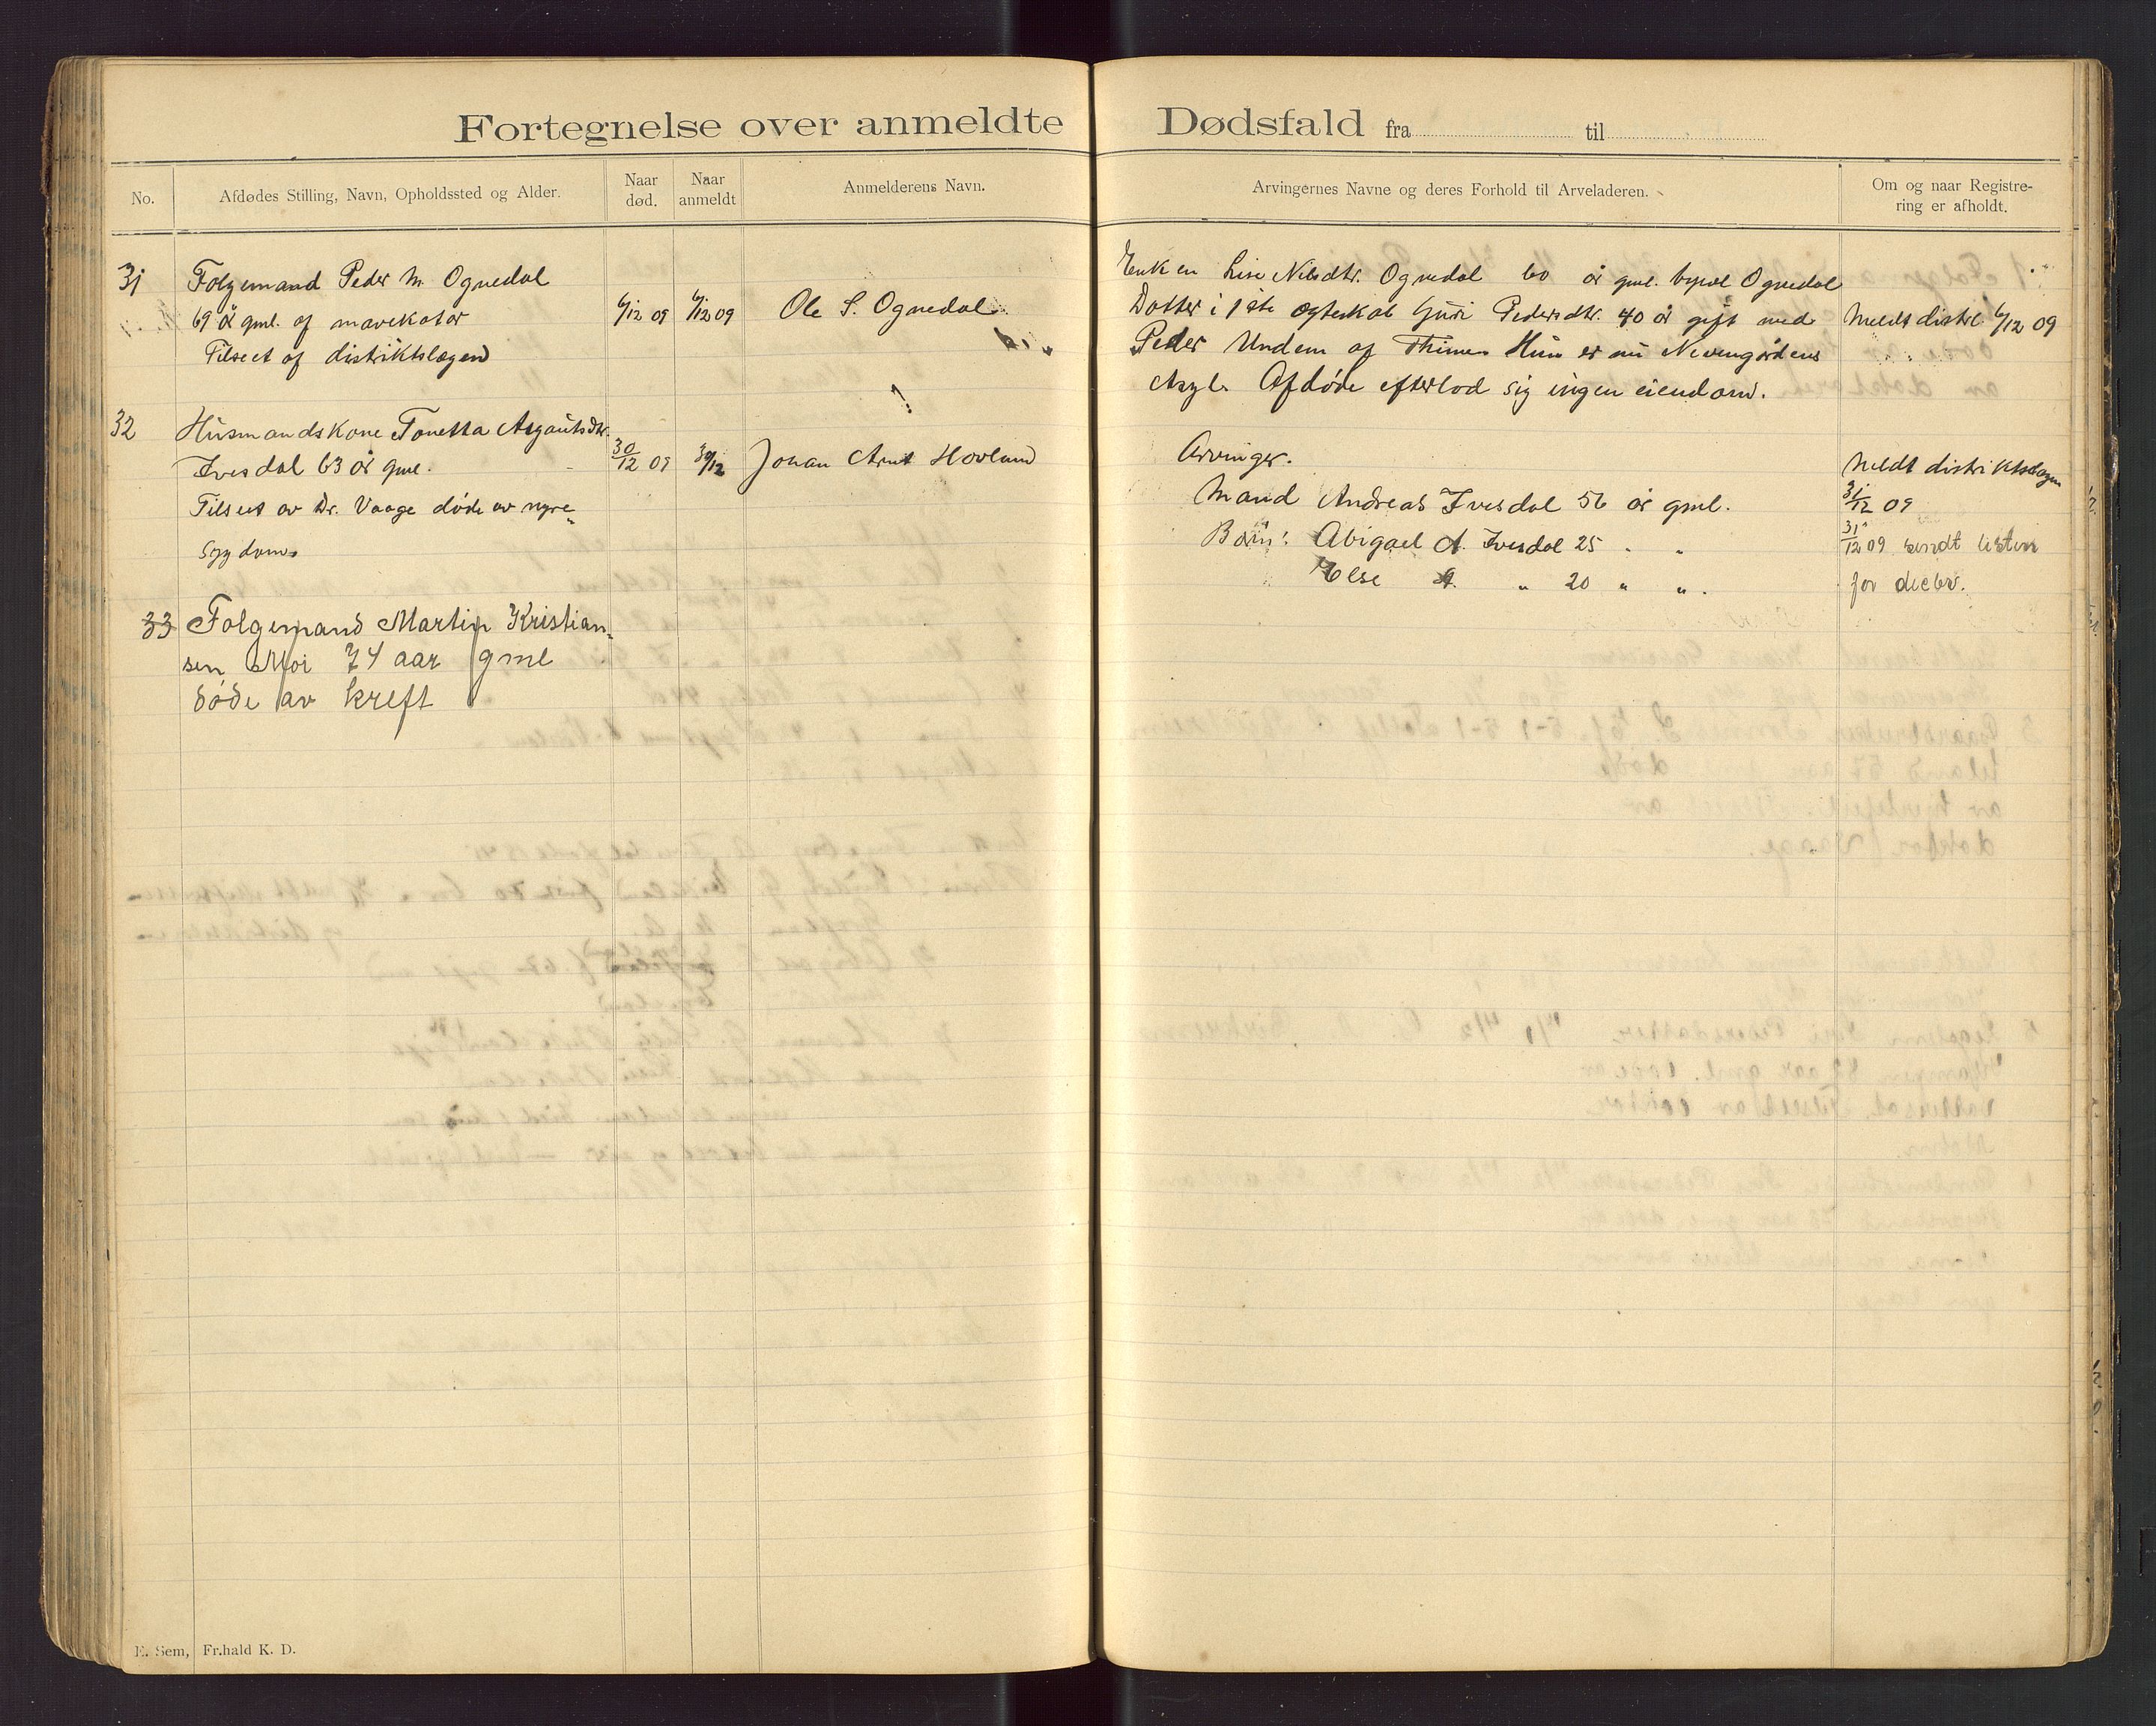 Fortegnelse over anmeldte Dødsfald fra til
No.
Afdødes Stilling, Navn, Opholdssted og Alder.
Naar død.
Naar anmeldt
Anmelderens Navn.
Arvingernes Navne og deres Forhold til Arveladeren.
Om og naar Registrering er afholdt.
31
Folgemand Peder M. Ognedal
69 år gml. af mavekatar
Tilseet af distriktslægen
6/12 09
6/12 09
Ole S. Ognedal
Enken Lise Nilsdtr. Ognedal 60 år gml. bopæl Ognedal
Datter i 1ste ægteskab Guri Pedersdtr. 40 år gift med
Peder Undem af Thime. Hun er nu Nevengårdens
Asyl. Afdøde efterlod sig ingen eiendom.
Meldt distrl. 6/12 09
32
Husmandskone Tonetta Asgautsdtr.
Ivesdal 63 år gml.
Tilseet av Dr. Vaage døde av nyre
sygdom.
30/12 09
30/12
Johan Arnt Hovland
Arvinger.
Mand Andreas Ivesdal 56 år gml.
Børn: Abigael A. Ivesdal 25 " "
Else A. " 20 " " .
Meldt distriktslægen
31/12 09
31/12 09 sendt listen
for decbr.
33 Folgemand Martin Kristian-
sen Moi 74 aar gml
døde av kreft
E. Sem, Fr.hald K. D.